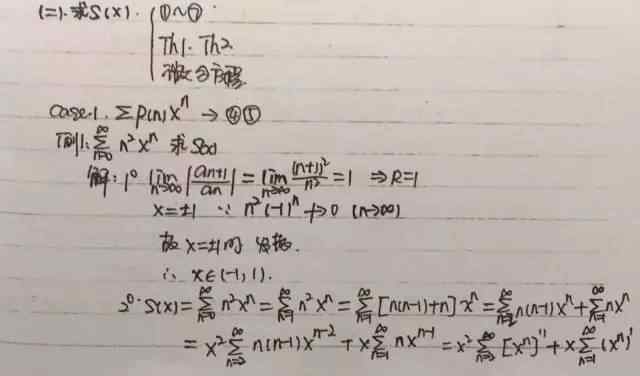 (二). 求S(x). { ①~⑦
Th1. Th2
微分方程
case1. ΣP(n)xⁿ → ④⑤
例1: ∑_{n=0}^{∞} n²xⁿ 求S(x)
解: 1° lim_{n→∞} |a_{n+1}/a_n| = lim_{n→∞} (n+1)²/n² = 1 ⇒ R=1
x=±1 ∵ n²(-1)ⁿ ↛ 0 (n→∞)
故 x=±1时 发散.
∴ x∈(-1,1).
2°. S(x) = ∑_{n=0}^{∞} n²xⁿ = ∑_{n=1}^{∞} n²xⁿ = ∑_{n=1}^{∞} [n(n-1)+n]·xⁿ = ∑_{n=2}^{∞} n(n-1)xⁿ + ∑_{n=1}^{∞} nxⁿ
= x² ∑_{n=2}^{∞} n(n-1)x^{n-2} + x ∑_{n=1}^{∞} nx^{n-1} = x² ∑_{n=2}^{∞} [xⁿ]'' + x ∑_{n=1}^{∞} (xⁿ)'